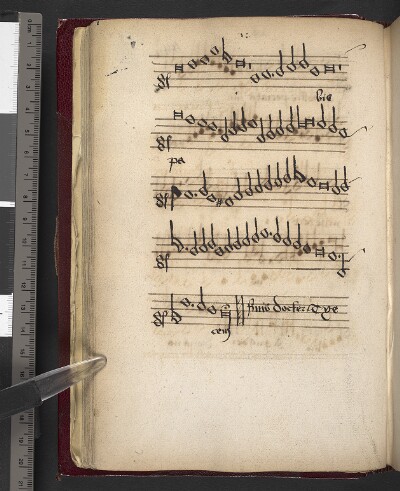 bis
pa
cem
finis docter Tye